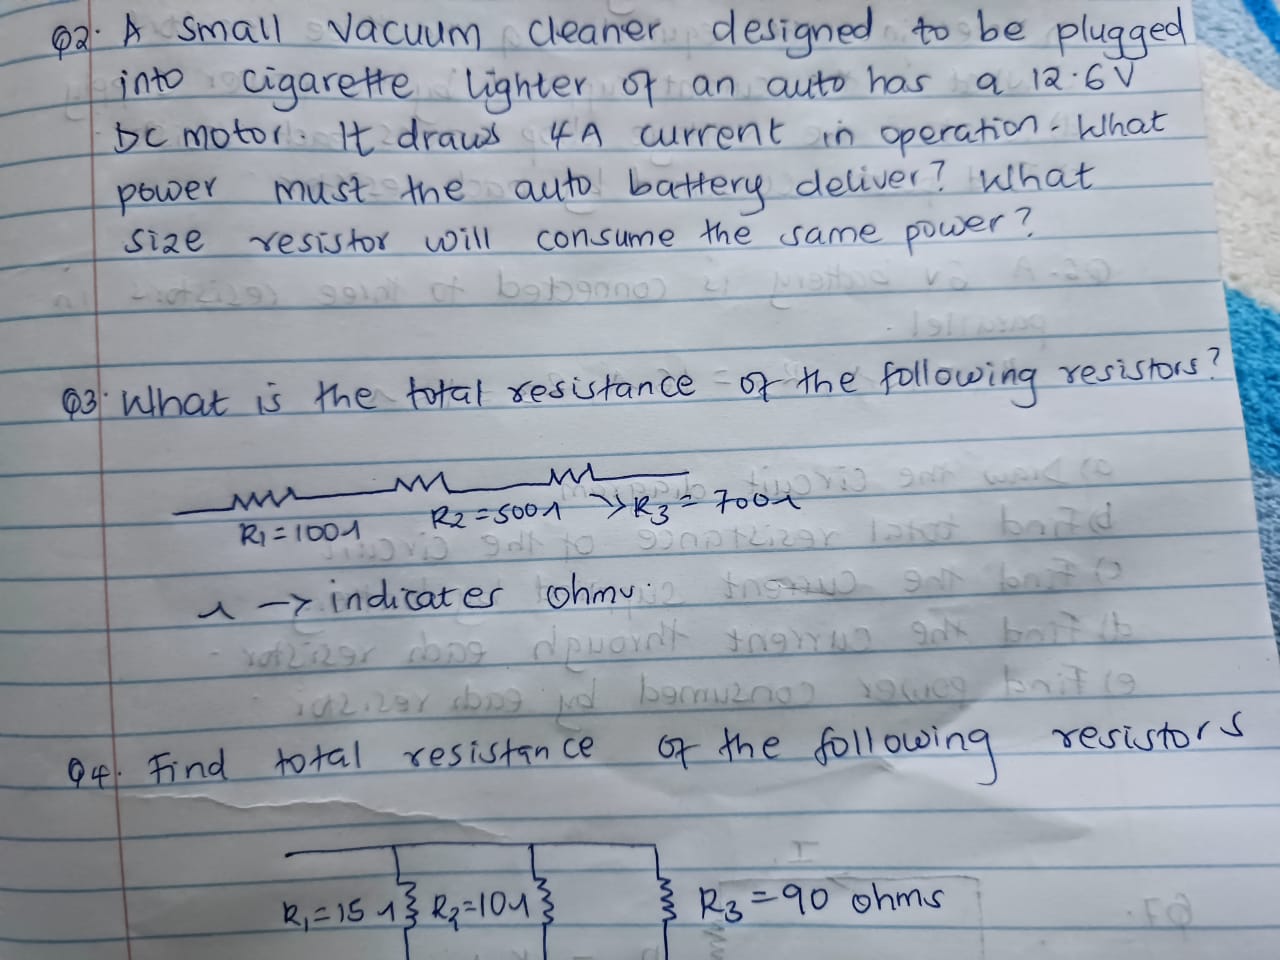 Q2. A small vacuum cleaner designed to be plugged
into cigarette lighter of an auto has a 12.6V
DC motor. It draws 4A current in operation. What
power must the auto battery deliver? What
size resistor will consume the same power?
Q3. What is the total resistance of the following resistors?
R1=100Ω R2=500Ω → R3=700Ω
Ω → indicates ohms.
Q4. Find total resistance of the following resistors
R1=15Ω R2=10Ω R3=90 ohms